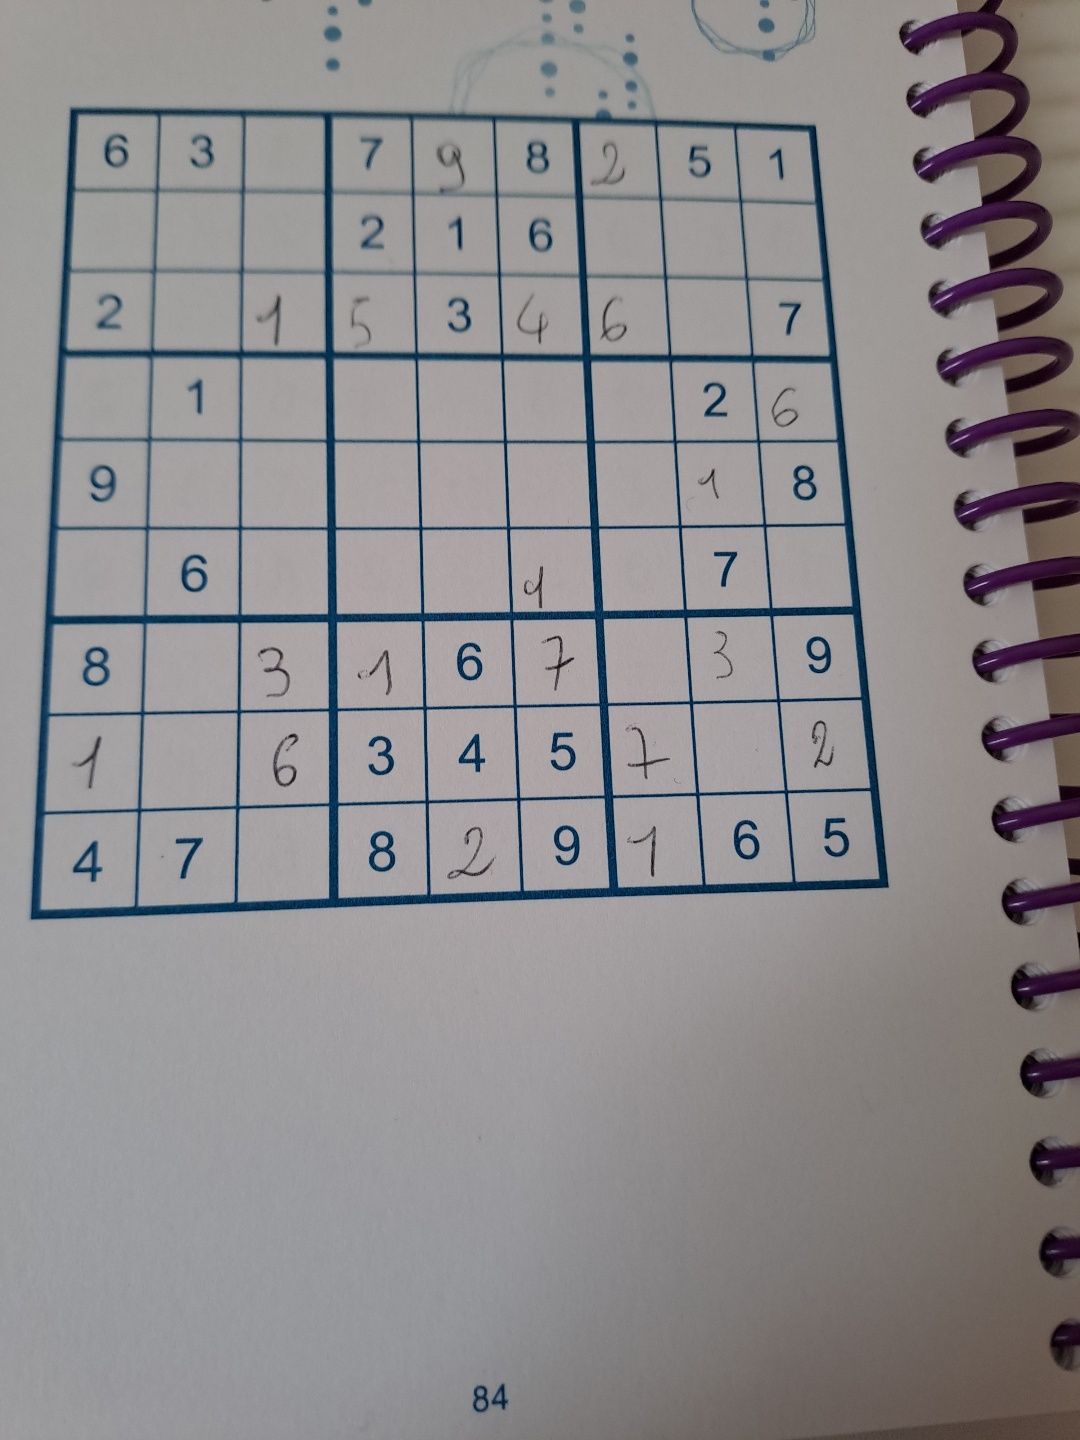 6 3 7 9 8 2 5 1
2 1 6
2 1 5 3 4 6 7
1 2 6
9 1 8
6 1 7
8 3 1 6 7 3 9
1 6 3 4 5 7 2
4 7 8 2 9 1 6 5
84